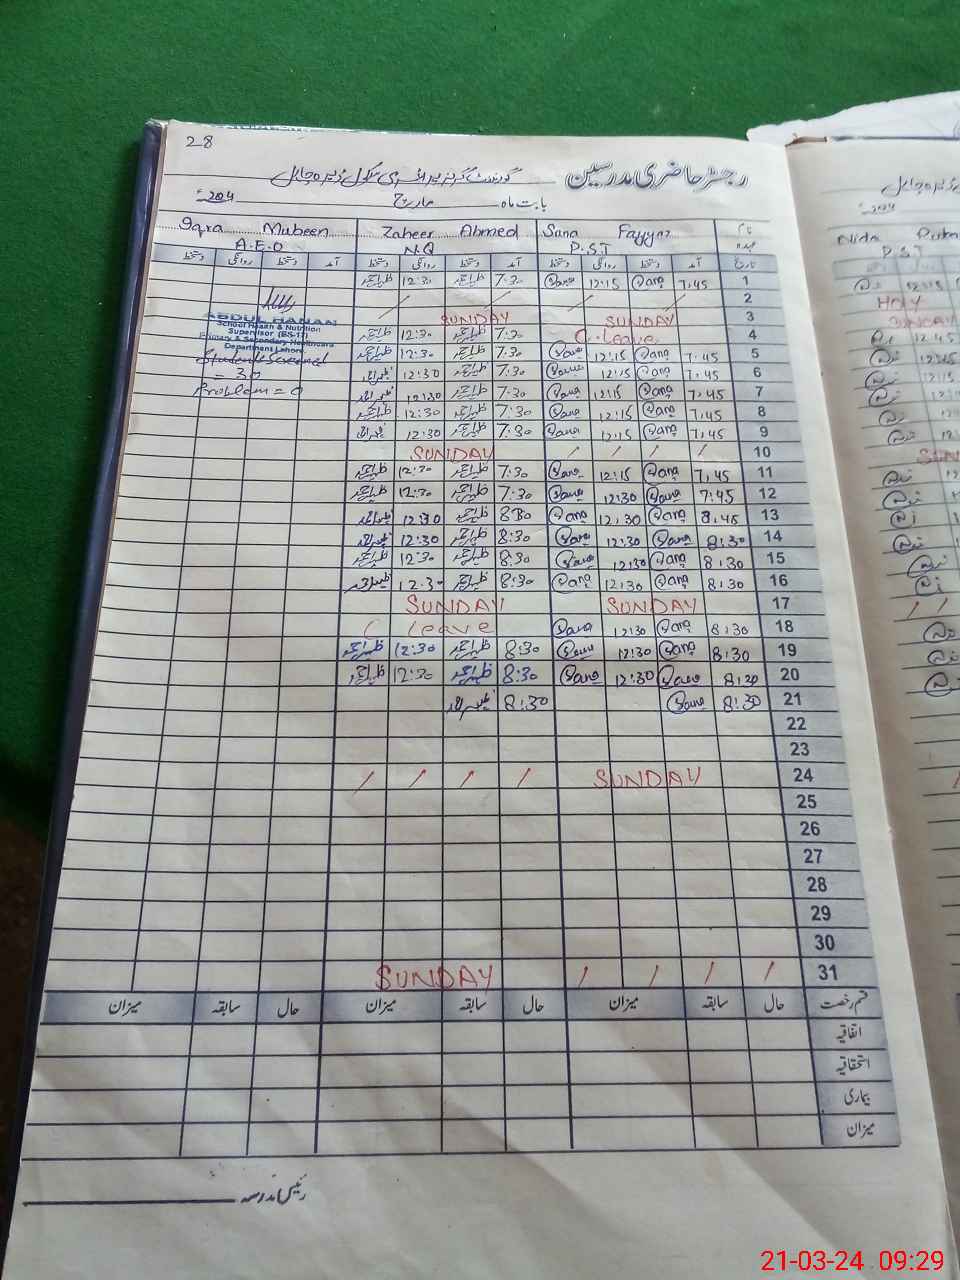 28
رجسٹر حاضری مدرسین گورنمنٹ گرلز پرائمری سکول
بابت ماہ مارچ 2024ء
نام Sana Fayyaz Zaheer Ahmed Iqra Mubeen
عہدہ P.S.T N.Q A.E.O
تاریخ آمد دستخط روانگی دستخط آمد دستخط روانگی دستخط آمد دستخط روانگی دستخط
1 7,45 Sana 12:15 Sana 7:30 ظہیر احمد 12:30 ظہیر احمد
2 / / / /
3 SUNDAY SUNDAY
4 C. Leave 7:30 ظہیر احمد 12:30 ظہیر احمد
5 7.45 Sana 12:15 Sana 7:30 ظہیر احمد 12:30 ظہیر احمد
6 7,45 Sana 12:15 Sana 7:30 ظہیر احمد 12:30 ظہیر احمد
7 7,45 Sana 12:15 Sana 7:30 ظہیر احمد 12:30 ظہیر احمد
8 7,45 Sana 12:15 Sana 7:30 ظہیر احمد 12:30 ظہیر احمد
9 7,45 Sana 12:15 Sana 7:30 ظہیر احمد 12:30 ظہیر احمد
10 / / / / SUNDAY
11 7,45 Sana 12:15 Sana 7:30 ظہیر احمد 12:30 ظہیر احمد
12 7:45 Sana 12:30 Sana 7:30 ظہیر احمد 12:30 ظہیر احمد
13 8,45 Sana 12,30 Sana 8:30 ظہیر احمد 12:30 ظہیر احمد
14 8:30 Sana 12:30 Sana 8:30 ظہیر احمد 12:30 ظہیر احمد
15 8:30 Sana 12:30 Sana 8:30 ظہیر احمد 12:30 ظہیر احمد
16 8:30 Sana 12:30 Sana 8:30 ظہیر احمد 12:30 ظہیر احمد
17 SUNDAY SUNDAY
18 8:30 Sana 12:30 Sana C Leave
19 8:30 Sana 12:30 Sana 8:30 ظہیر احمد 12:30 ظہیر احمد
20 8:30 Sana 12:30 Sana 8:30 ظہیر احمد 12:30 ظہیر احمد
21 8:30 Sana 8:30 ظہیر احمد
22
23
24 SUNDAY / / / /
25
26
27
28
29
30
31 / / / / SUNDAY
قسم رخصت حال سابقہ میزان حال سابقہ میزان حال سابقہ میزان
اتفاقیہ
استحقاقیہ
بیماری
میزان
رئیس مدرسہ
ABDUL HANAN
School Health & Nutrition
Supervisor (BS-17)
Primary & Secondary Healthcare
Department Lahore.
Student Screened
= 30
Problem = 0
Nida
P.S.T
HOLY
SUNDAY
12:45
12:15
21-03-24 09:29